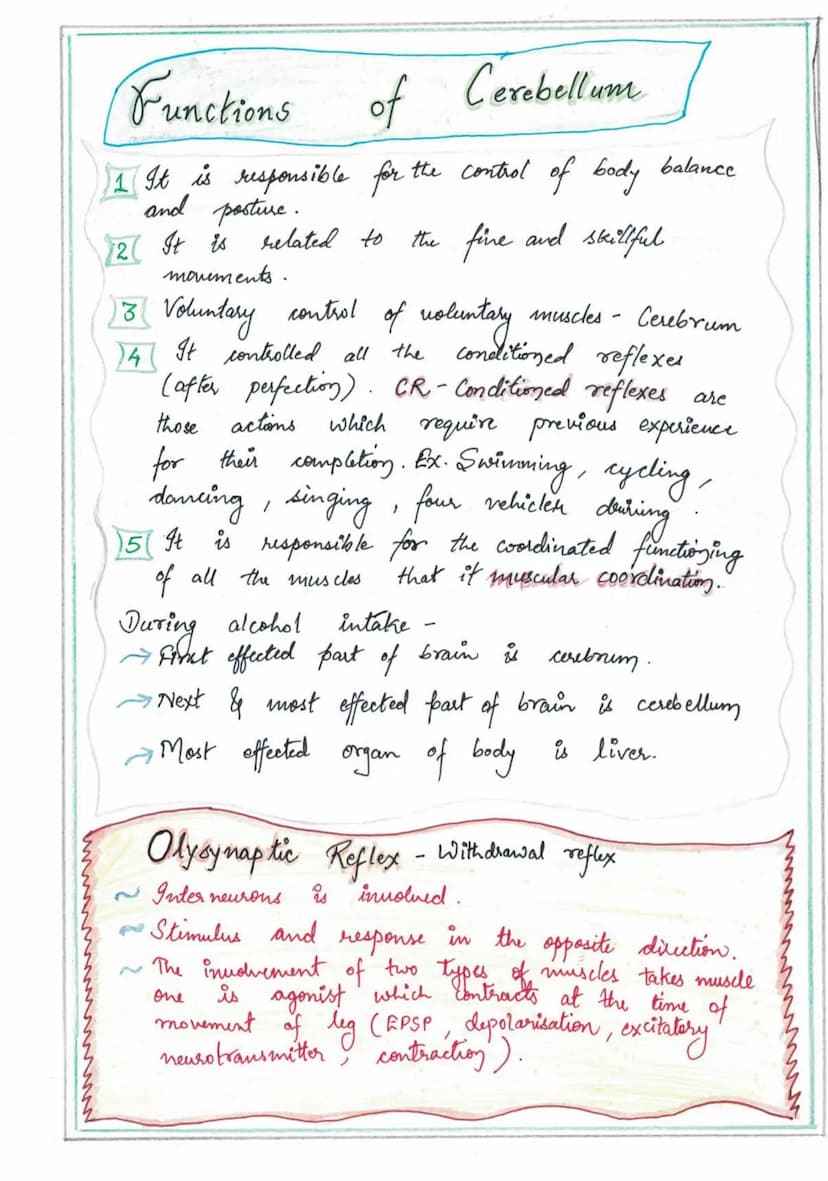 Functions of Cerebellum
1 It is responsible for the control of body balance
and posture.
2 It is related to the fine and skillful
movements.
3 Voluntary control of voluntary muscles - Cerebrum
4 It controlled all the conditioned reflexes
(after perfection). CR - Conditioned reflexes are
those actions which require previous experience
for their completion. Ex. Swimming, cycling,
dancing, singing, four vehicles
5 It is responsible for the coordinated functioning
of all the muscles that if muscular coordination.
During alcohol intake -
→ First effected part of brain is cerebrum.
→ Next & most effected part of brain is cerebellum
→ Most effected organ of body is liver.
Olysynaptic Reflex - Withdrawal reflex
~ Inter neurons is involved.
~ Stimulus and response in the opposite direction.
~ The involvement of two types of muscles takes muscle
one is agonist which contracts at the time of
movement of leg (EPSP, depolarisation, excitatory
neurotransmitter, contraction).